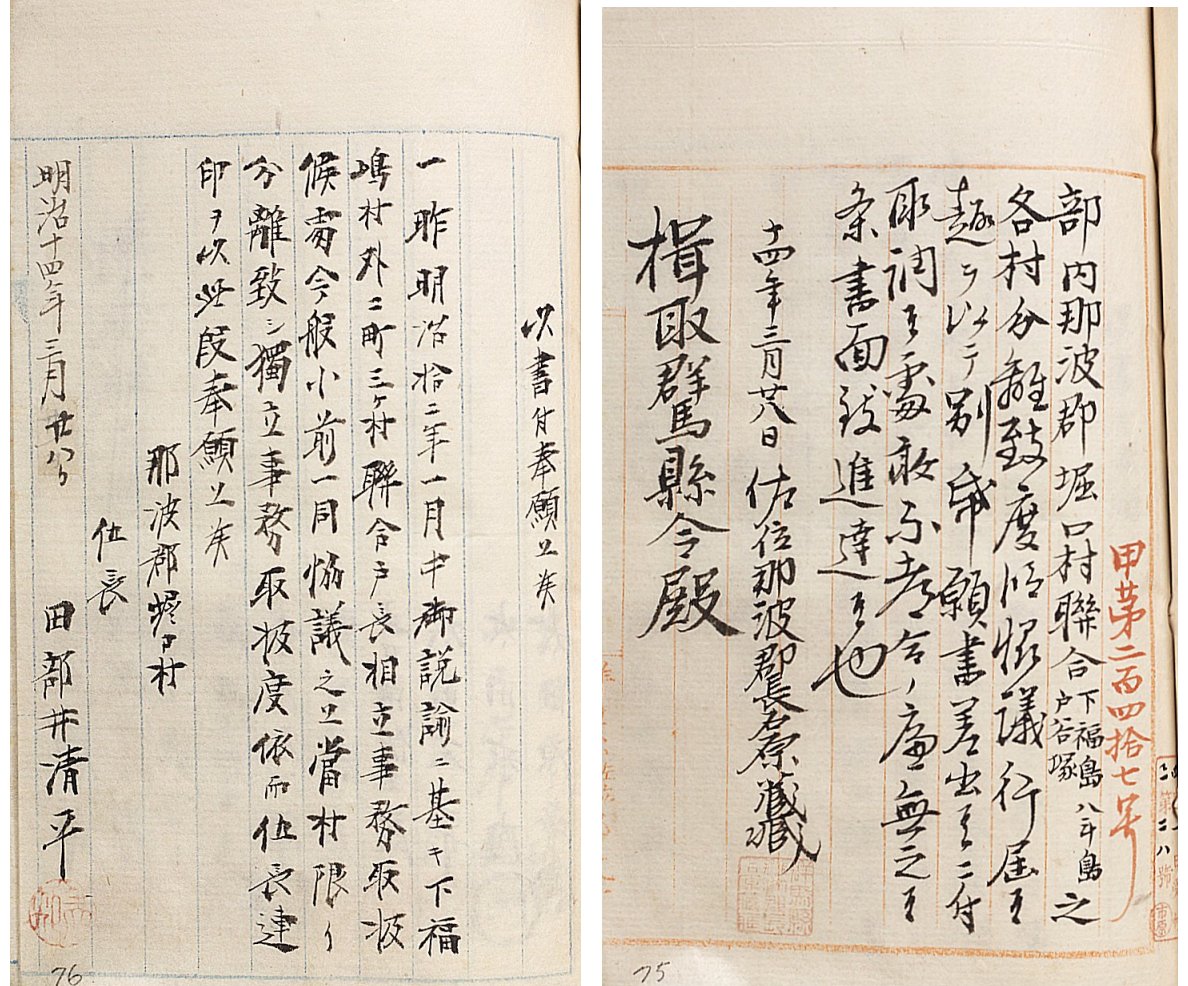 甲第二百四拾七号
部内那波郡堀口村聯合下福島八斗島戸谷塚之
各村分離致度旨協議行届候
趣ヲ以テ別帋願書差出候ニ付
取調候處敢不都合ノ廉無之候
条書面致進達候也
十四年三月廿八日 佐位那波郡長
楫取群馬縣令殿
75
以書付奉願上候
一昨明治拾二年一月中御説諭ニ基キ下福
嶋村外二町三ヶ村聯合戸長相立事務取扱
候處今般小前一同協議之上當村限リ
分離致シ獨立事務取扱度依而伍長連
印ヲ以此段奉願上候
那波郡 村
伍長
田部井清平
明治十四年三月廿八日
76